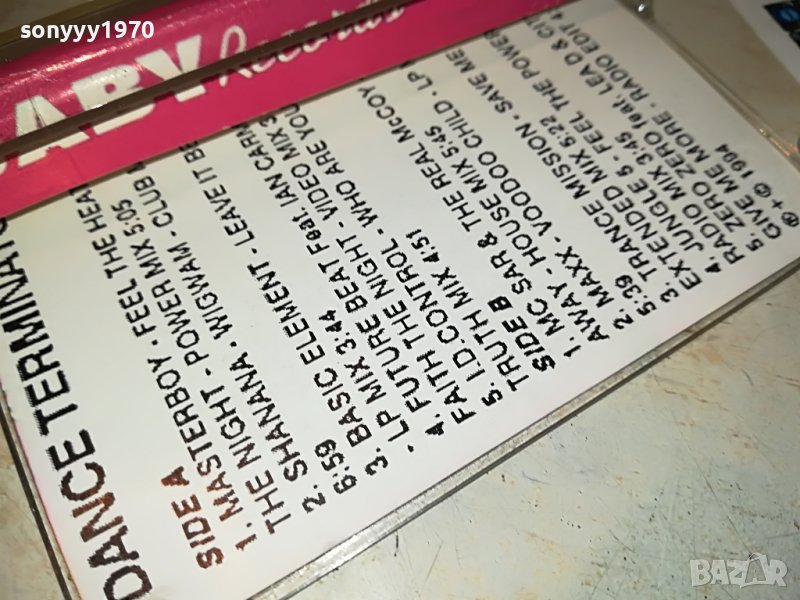 sonyyy1970
ABY Records
DANCE TERMINATO
SIDE A
1. MASTERBOY - FEEL THE HEAT
THE NIGHT - POWER MIX 5:05
2. SHANANA - WIGWAM - CLUB
6:59
3. BASIC ELEMENT - LEAVE IT BE
- LP MIX 3:44
4. FUTURE BEAT Feat. IAN CARM
FAITH THE NIGHT - VIDEO MIX 3
5. I.D.CONTROL - WHO ARE YOU
TRUTH MIX 4:51
SIDE B
1. MC SAR & THE REAL McCOY
AWAY - HOUSE MIX 5:45
2. MAXX - VOODOO CHILD - LP
5:39
3. TRANCE MISSION - SAVE ME
EXTENDED MIX 5:22
4. JUNGLE 5 - FEEL THE POWER
RADIO MIX 3:45
5. ZERO ZERO feat. LEA D & CIT
GIVE ME MORE - RADIO EDIT 4
℗ + © 1994
BAZAR